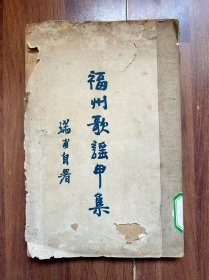 福州歌謡甲集
端甫自署